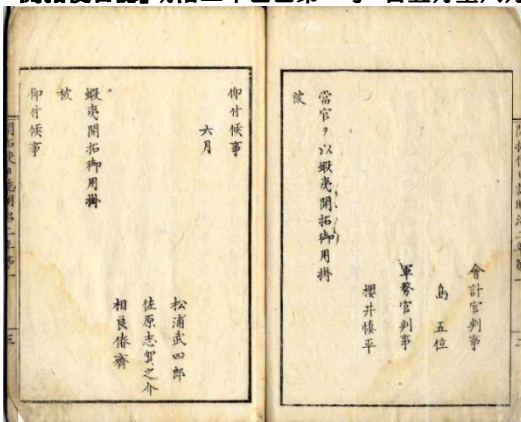 會計官判事
島 五位
軍務官判事
櫻井慎平
當官ヲ以蝦夷開拓御用掛
被
仰付候事
六月
松浦武四郎
佐原志賀之介
相良偆齋
蝦夷開拓御用掛
被
仰付候事
三